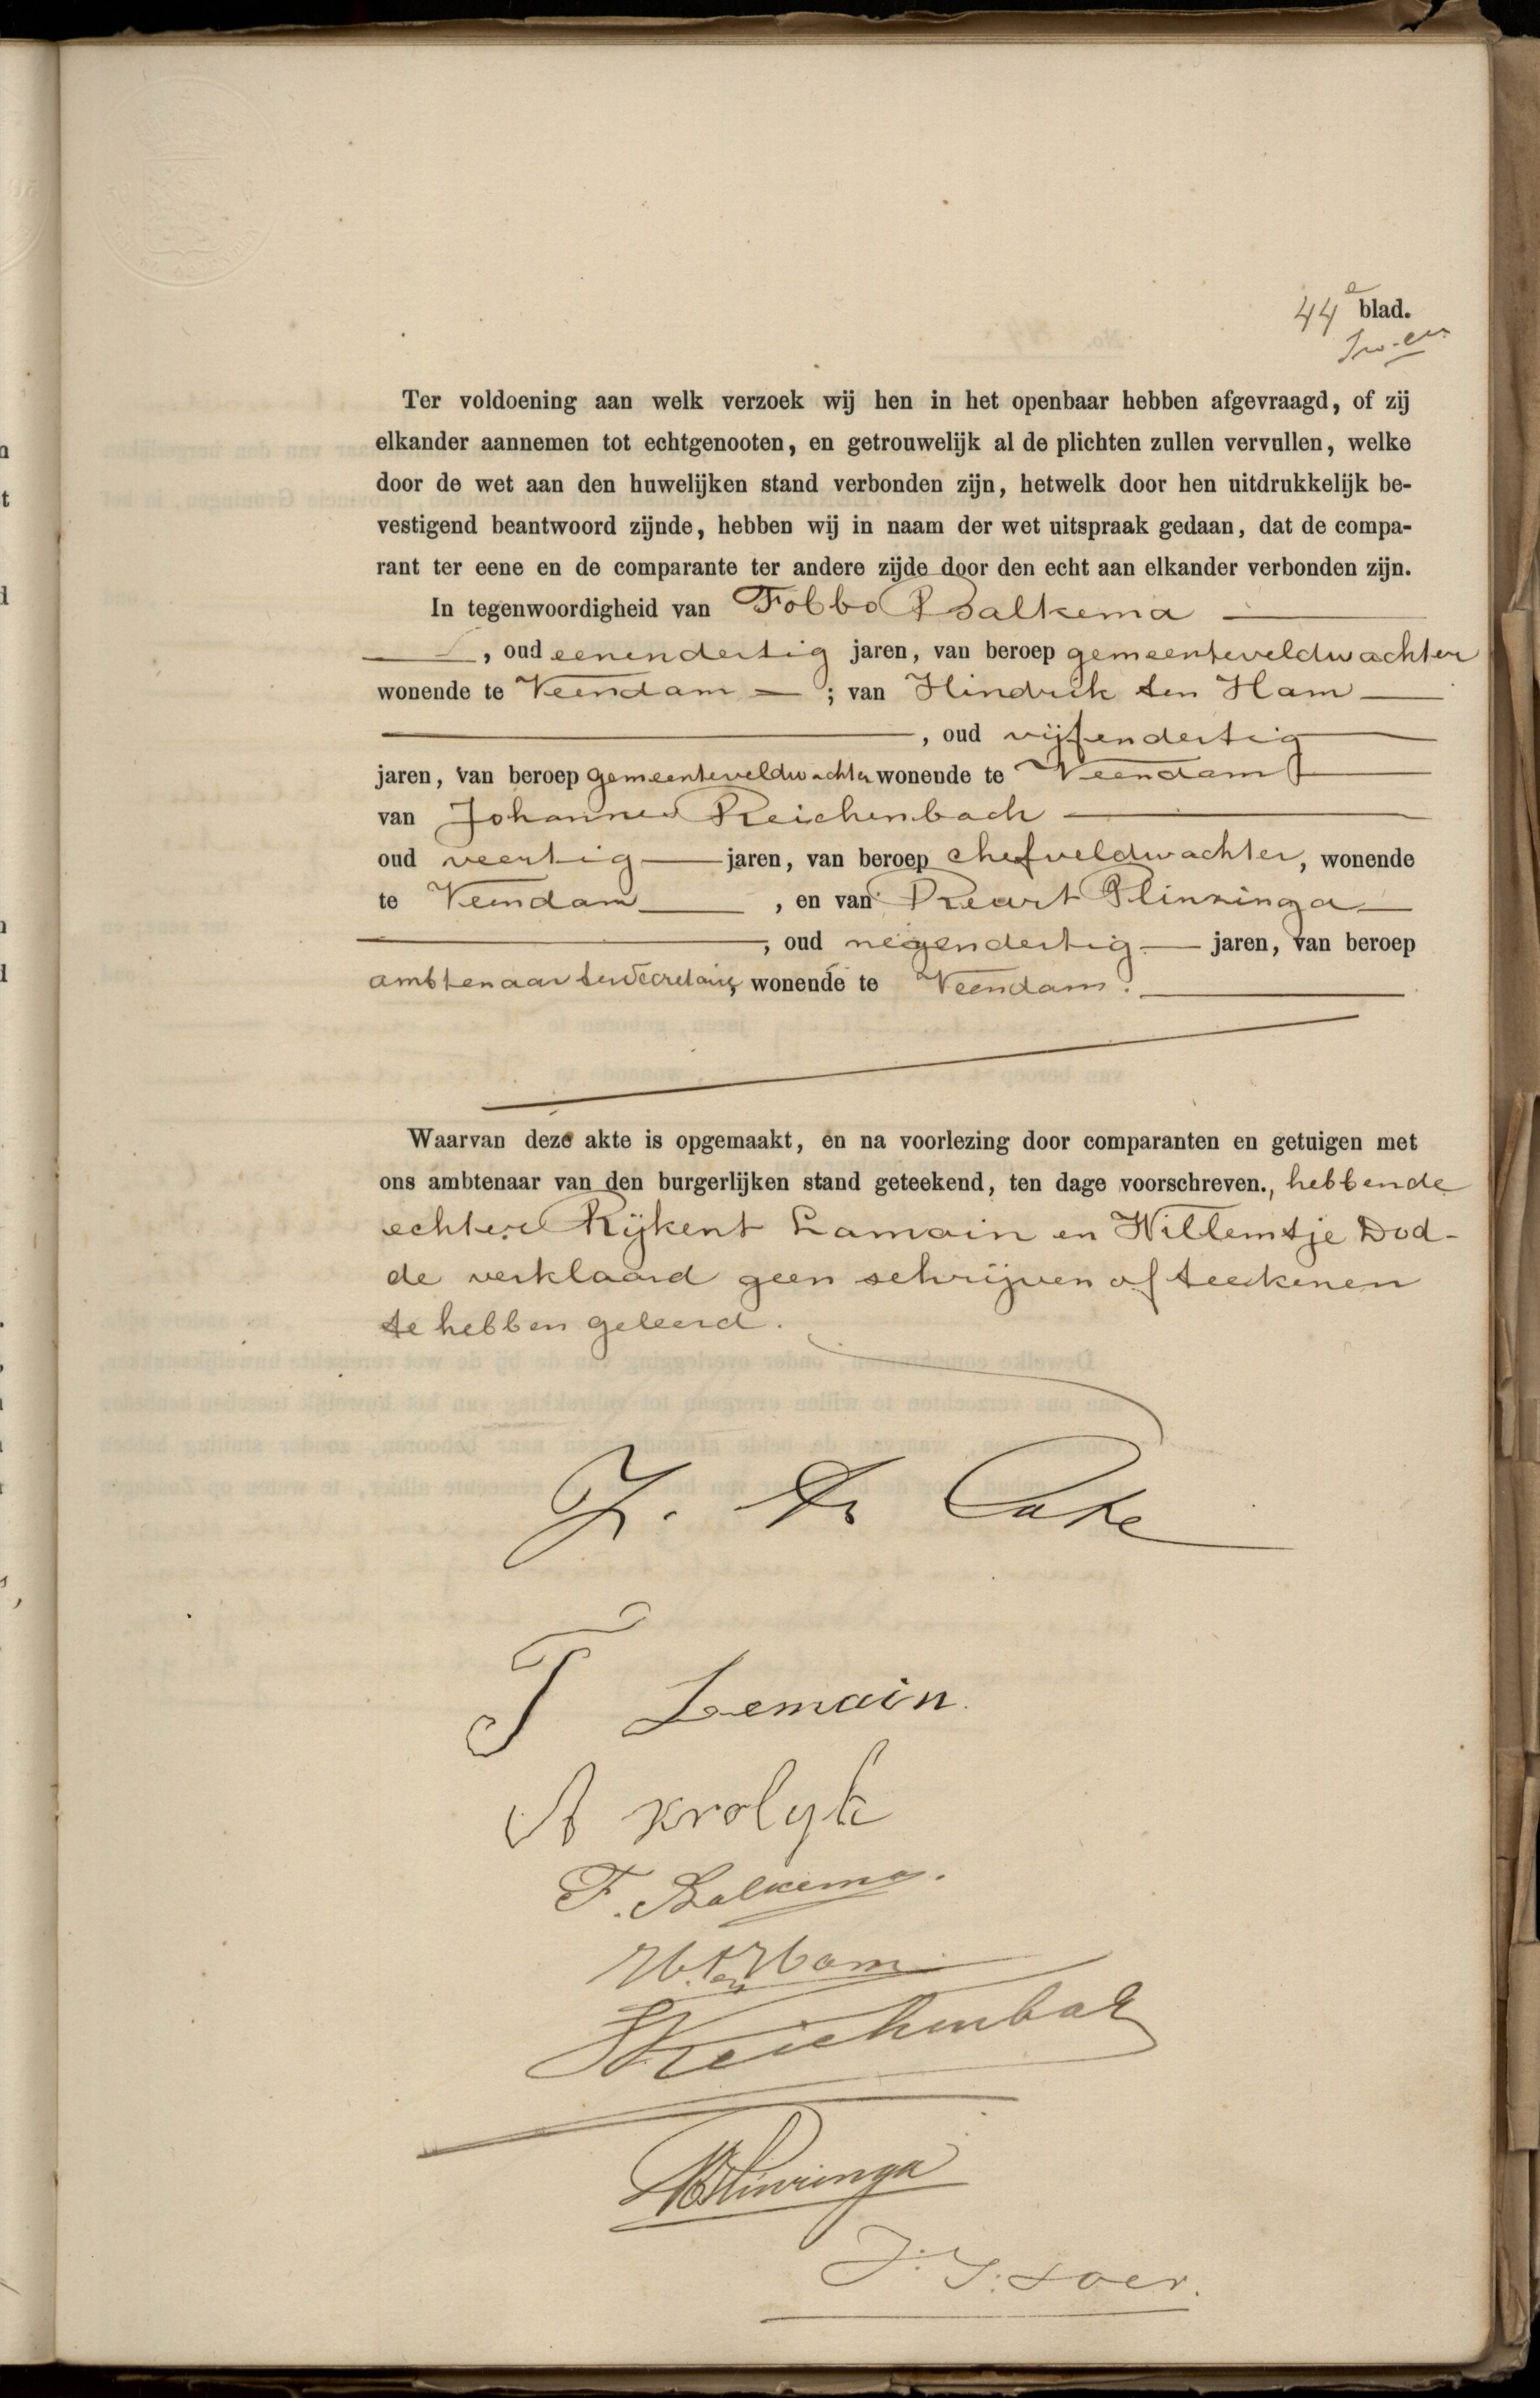 44e blad.
Ter voldoening aan welk verzoek wij hen in het openbaar hebben afgevraagd, of zij
elkander aannemen tot echtgenooten, en getrouwelijk al de plichten zullen vervullen, welke
door de wet aan den huwelijken stand verbonden zijn, hetwelk door hen uitdrukkelijk be-
vestigend beantwoord zijnde, hebben wij in naam der wet uitspraak gedaan, dat de compa-
rant ter eene en de comparante ter andere zijde door den echt aan elkander verbonden zijn.
In tegenwoordigheid van Fobbo Balkema
, oud eenendertig jaren, van beroep gemeenteveldwachter
wonende te Veendam ; van Hindrik ten Ham
, oud vijfendertig
jaren, van beroep gemeenteveldwachter wonende te Veendam
van Johannes Reichenbach
oud veertig jaren, van beroep chefveldwachter, wonende
te Veendam , en van Reart Plinsinga
, oud negendertig jaren, van beroep
ambtenaar ter secretarie, wonende te Veendam.
Waarvan deze akte is opgemaakt, en na voorlezing door comparanten en getuigen met
ons ambtenaar van den burgerlijken stand geteekend, ten dage voorschreven., hebbende
echter Rijkent Lamain en Willemtje Dod-
de verklaard geen schrijven of teekenen
te hebben geleerd.
T Lemain.
A Krolyk
F. Balkema.
H. ten Ham
J Reichenbach
R Plinsinga